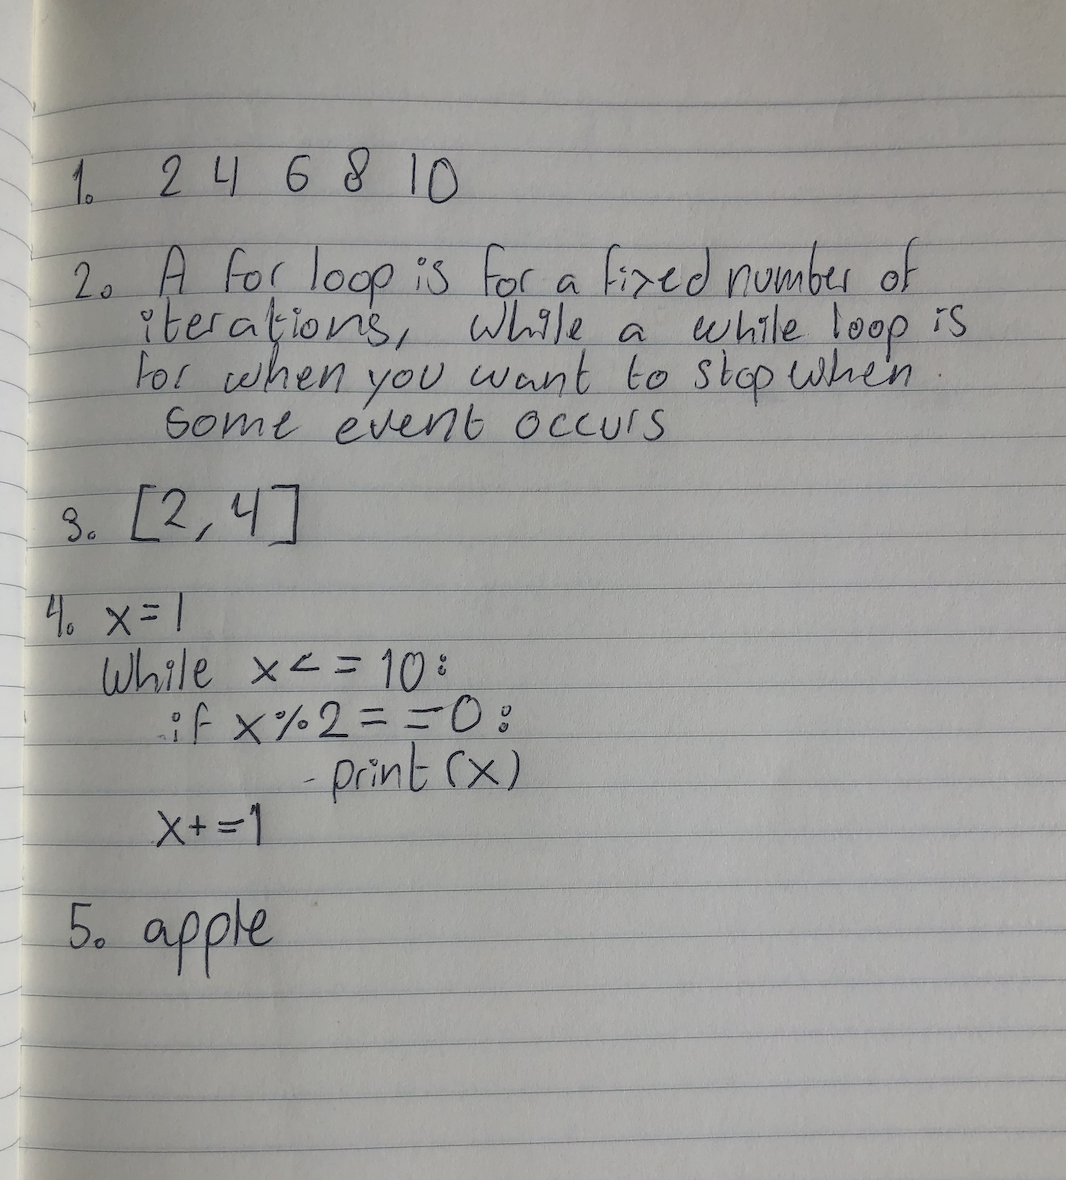 1. 2 4 6 8 10
2. A for loop is for a fixed number of
iterations, while a while loop is
for when you want to stop when
some event occurs
3. [2, 4]
4. x=1
While x<=10:
if x%2==0:
print(x)
x+=1
5. apple